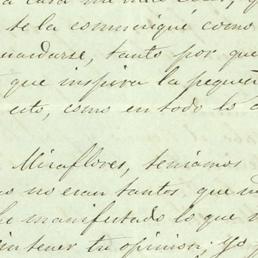 te la comunique como
guardarse, tanto por que
que inspira la pequeñ
esto, como en todo lo d
Miraflores, teniamos
no eran tantos que m
he manifestado lo que
sin tener tu opinion; Yo